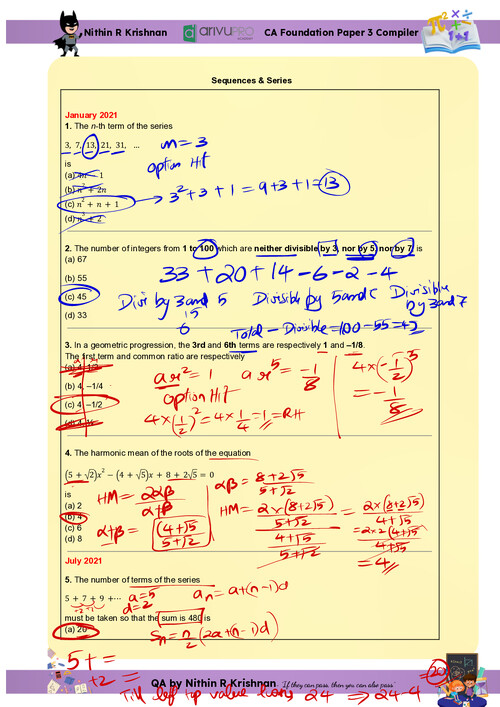 Nithin R Krishnan
arivuPRO
ACADEMY
CA Foundation Paper 3 Compiler
Sequences & Series
January 2021
1. The n-th term of the series
3, 7, 13, 21, 31, ...
n = 3
is
option Hit
(a) 4n − 1
(b) n² + 2n
(c) n² + n + 1
3² + 3 + 1 = 9 + 3 + 1 = 13
(d) n² + 2
2. The number of integers from 1 to 100 which are neither divisible by 3, nor by 5 nor by 7 is
(a) 67
(b) 55
33 + 20 + 14 − 6 − 2 − 4
(c) 45
Divi by 3 and 5
Divisible by 5 and
Divisible by 3 and 7
15
6
(d) 33
Total − Divisible = 100 − 55 = 45
3. In a geometric progression, the 3rd and 6th terms are respectively 1 and −1/8.
The first term and common ratio are respectively
(a) 4, 1/2
ar² = 1
ar⁵ = −1/8
4 × (−1/2)⁵
(b) 4, −1/4
option Hit
= −1/8
(c) 4, −1/2
4 × (1/2)² = 4 × 1/4 = 1 = RH
(d) 4, ¼
4. The harmonic mean of the roots of the equation
(5 + √2)x² − (4 + √5)x + 8 + 2√5 = 0
is
HM = 2αβ / α+β
αβ = 8+2√5 / 5+√2
(a) 2
(b) 4
HM = 2×(8+2√5) / 5+√2 / 4+√5 / 5+√2 = 2×(8+2√5) / 4+√5
(c) 6
α+β = (4+√5) / 5+√2
= 2×2(4+√5) / 4+√5
(d) 8
= 4
July 2021
5. The number of terms of the series
5 + 7 + 9 + ⋯
a = 5
d = 2
aₙ = a + (n−1)d
+2 +2
must be taken so that the sum is 480 is
(a) 20
Sₙ = n/2 (2a + (n−1)d)
5 + =
+2 =
20
QA by Nithin R Krishnan
"If they can pass, then you can also pass"
Till left top value 24 ⇒ 24 − 4